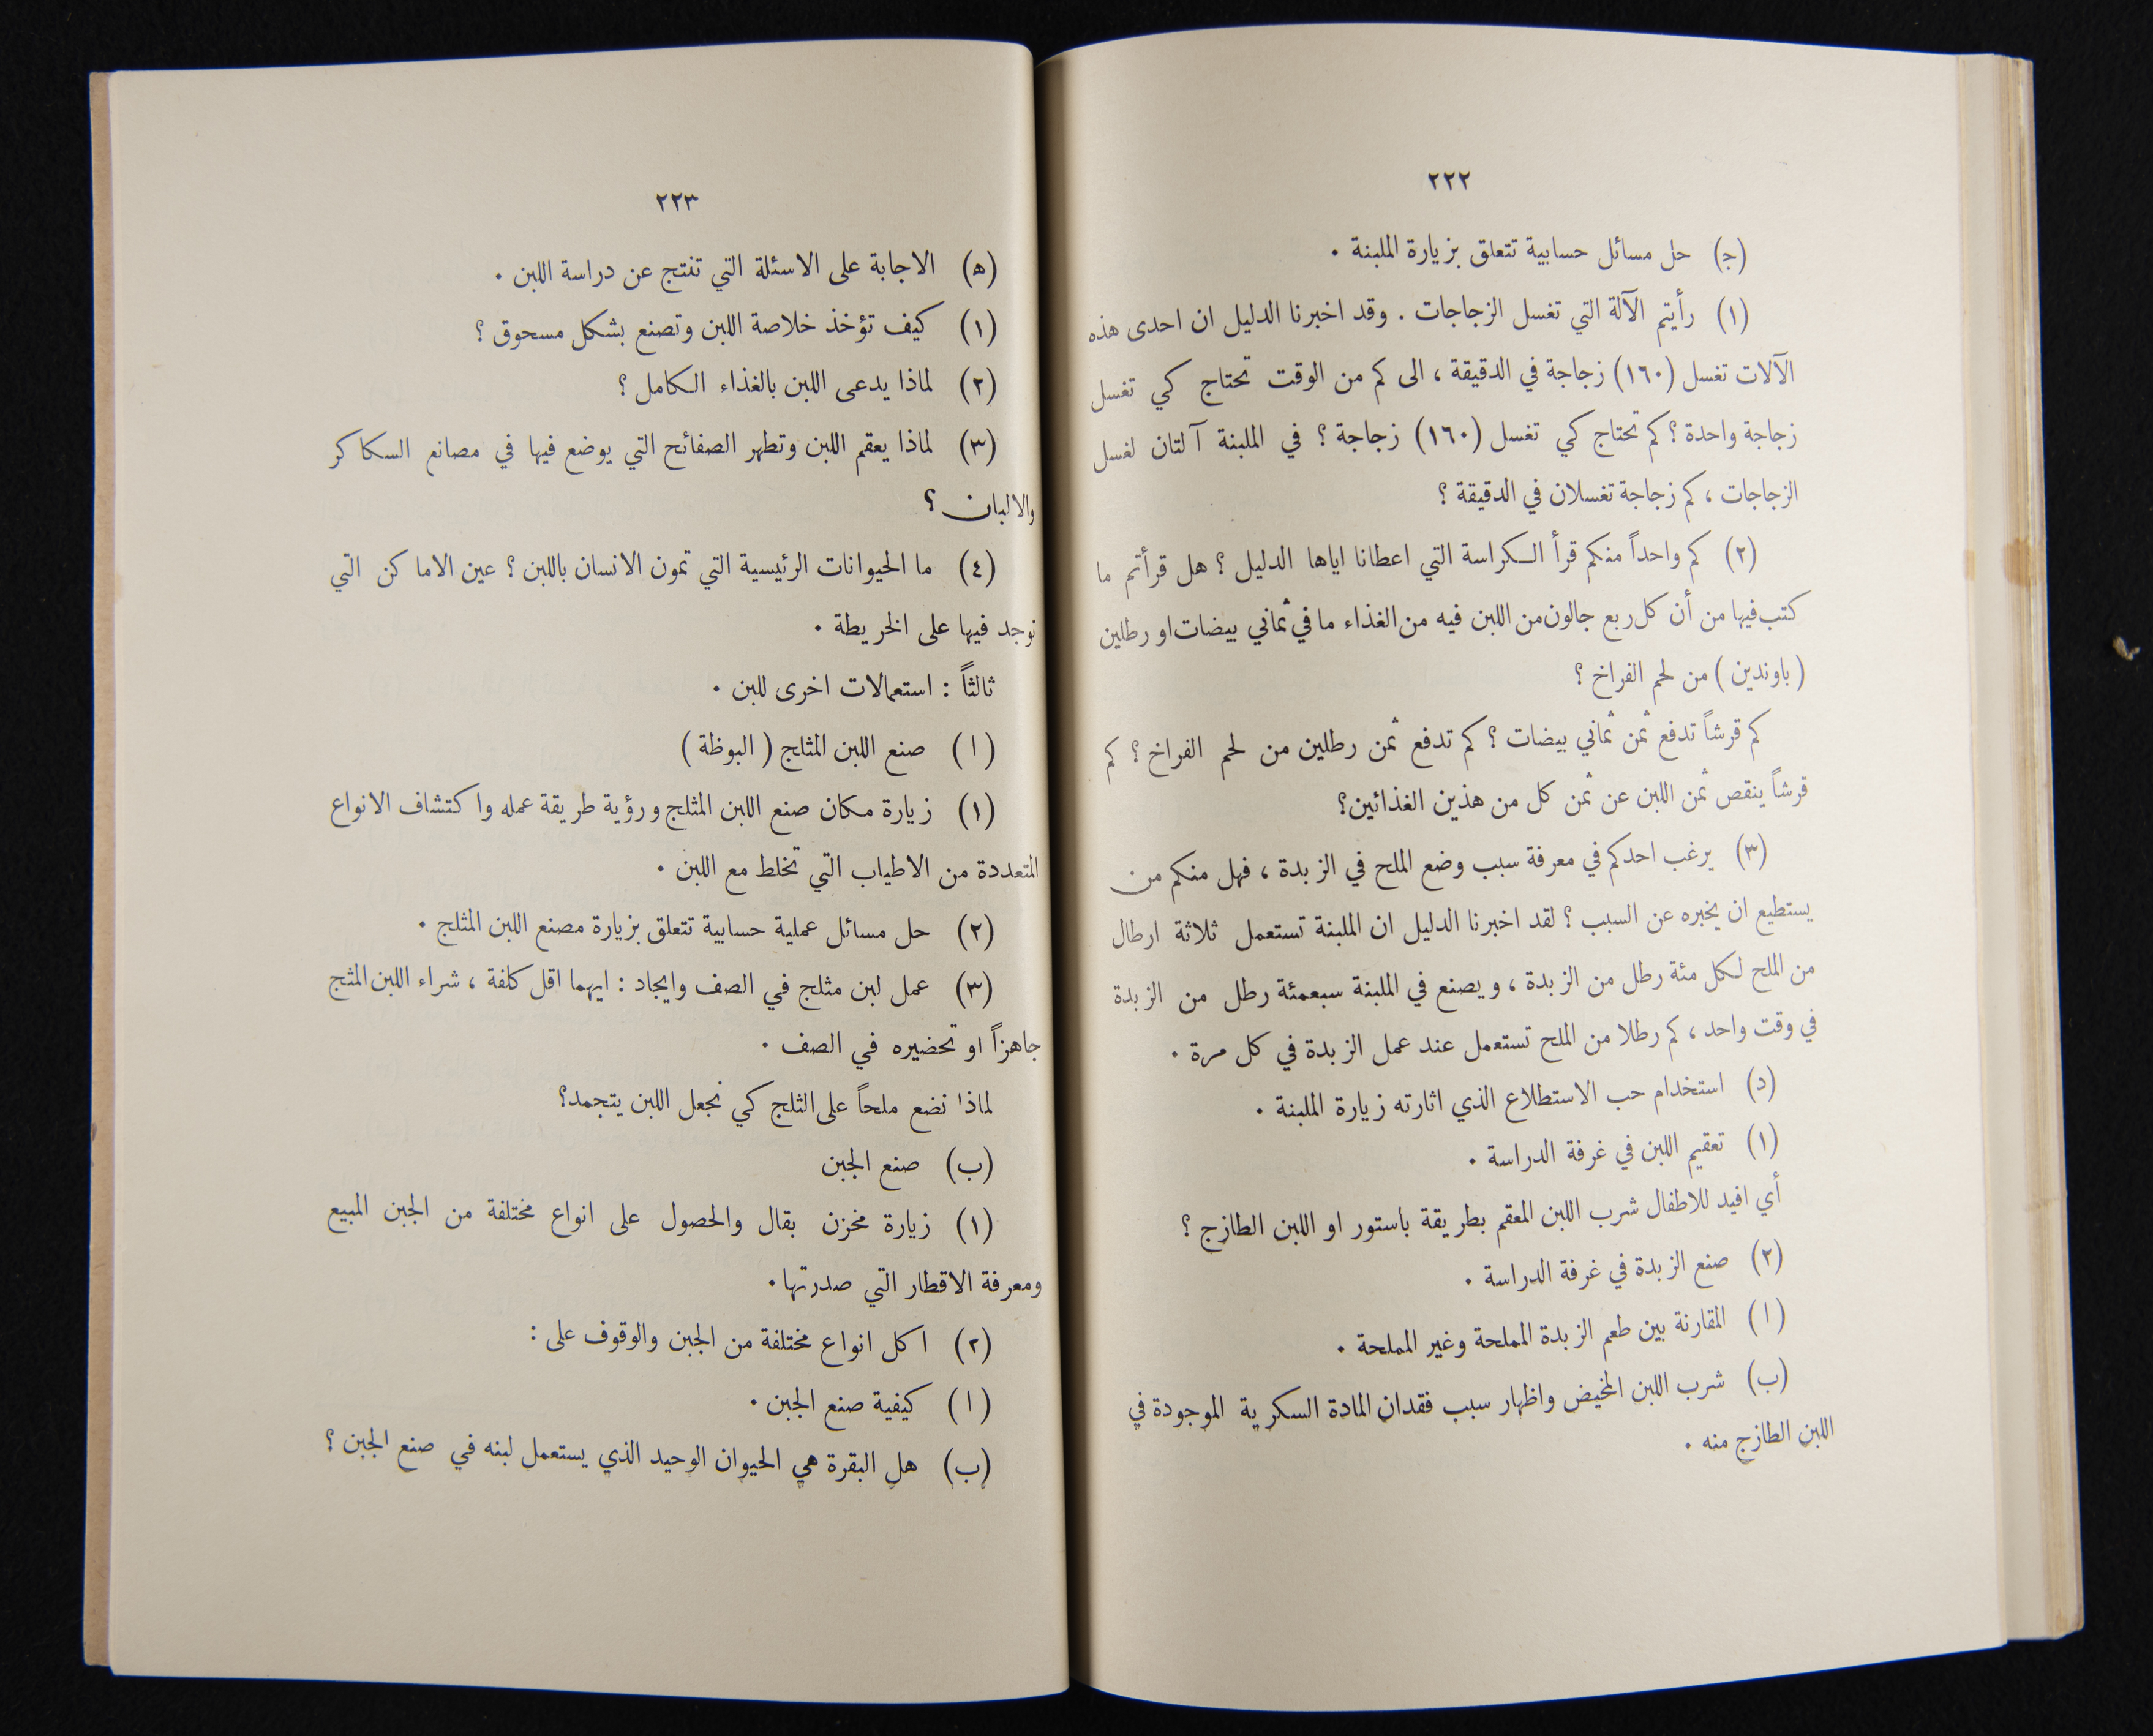 ٢٢٢
(ج) حل مسائل حسابية تتعلق بزيارة الملبنة .
(١) رأيتم الآلة التي تغسل الزجاجات . وقد اخبرنا الدليل ان احدى هذه
الآلات تغسل (١٦٠) زجاجة في الدقيقة ، الى كم من الوقت تحتاج كي تغسل
زجاجة واحدة ؟ كم تحتاج كي تغسل (١٦٠) زجاجة ؟ في الملبنة آلتان لغسل
الزجاجات ، كم زجاجة تغسلان في الدقيقة ؟
(٢) كم واحداً منكم قرأ الكراسة التي اعطانا اياها الدليل ؟ هل قرأتم ما
كتب فيها من أن كل ربع جالون من اللبن فيه من الغذاء ما في ثماني بيضات او رطلين
( باوندين ) من لحم الفراخ ؟
كم قرشاً تدفع ثمن ثماني بيضات ؟ كم تدفع ثمن رطلين من لحم الفراخ ؟ كم
قرشاً ينقص ثمن اللبن عن ثمن كل من هذين الغذائين؟
(٣) يرغب احدكم في معرفة سبب وضع الملح في الزبدة ، فهل منكم من
يستطيع ان يخبره عن السبب ؟ لقد اخبرنا الدليل ان الملبنة تستعمل ثلاثة ارطال
من الملح لكل مئة رطل من الزبدة ، ويصنع في الملبنة سبعمئة رطل من الزبدة
في وقت واحد ، كم رطلا من الملح تستعمل عند عمل الزبدة في كل مرة .
(د) استخدام حب الاستطلاع الذي اثارته زيارة الملبنة .
(١) تعقيم اللبن في غرفة الدراسة .
أي افيد للاطفال شرب اللبن المعقم بطريقة باستور او اللبن الطازج ؟
(٢) صنع الزبدة في غرفة الدراسة .
(ا) المقارنة بين طعم الزبدة المملحة وغير المملحة .
(ب) شرب اللبن المخيض واظهار سبب فقدان المادة السكرية الموجودة في
اللبن الطازج منه .
٢٢٣
(ه) الاجابة على الاسئلة التي تنتج عن دراسة اللبن .
(١) كيف تؤخذ خلاصة اللبن وتصنع بشكل مسحوق ؟
(٢) لماذا يدعى اللبن بالغذاء الكامل ؟
(٣) لماذا يعقم اللبن وتطهر الصفائح التي يوضع فيها في مصانع السكاكر
والالبان ؟
(٤) ما الحيوانات الرئيسية التي تمون الانسان باللبن ؟ عين الاماكن التي
توجد فيها على الخريطة .
ثالثاً : استعمالات اخرى للبن .
(ا) صنع اللبن المثلج ( البوظة )
(١) زيارة مكان صنع اللبن المثلج ورؤية طريقة عمله واكتشاف الانواع
المتعددة من الاطياب التي تخلط مع اللبن .
(٢) حل مسائل عملية حسابية تتعلق بزيارة مصنع اللبن المثلج .
(٣) عمل لبن مثلج في الصف وايجاد : ايهما اقل كلفة ، شراء اللبن المثج
جاهزاً او تحضيره في الصف .
لماذا نضع ملحاً على الثلج كي نجعل اللبن يتجمد؟
(ب) صنع الجبن
(١) زيارة مخزن بقال والحصول على انواع مختلفة من الجبن المبيع
ومعرفة الاقطار التي صدرتها .
(٢) اكل انواع مختلفة من الجبن والوقوف على :
(ا) كيفية صنع الجبن .
(ب) هل البقرة هي الحيوان الوحيد الذي يستعمل لبنه في صنع الجبن ؟